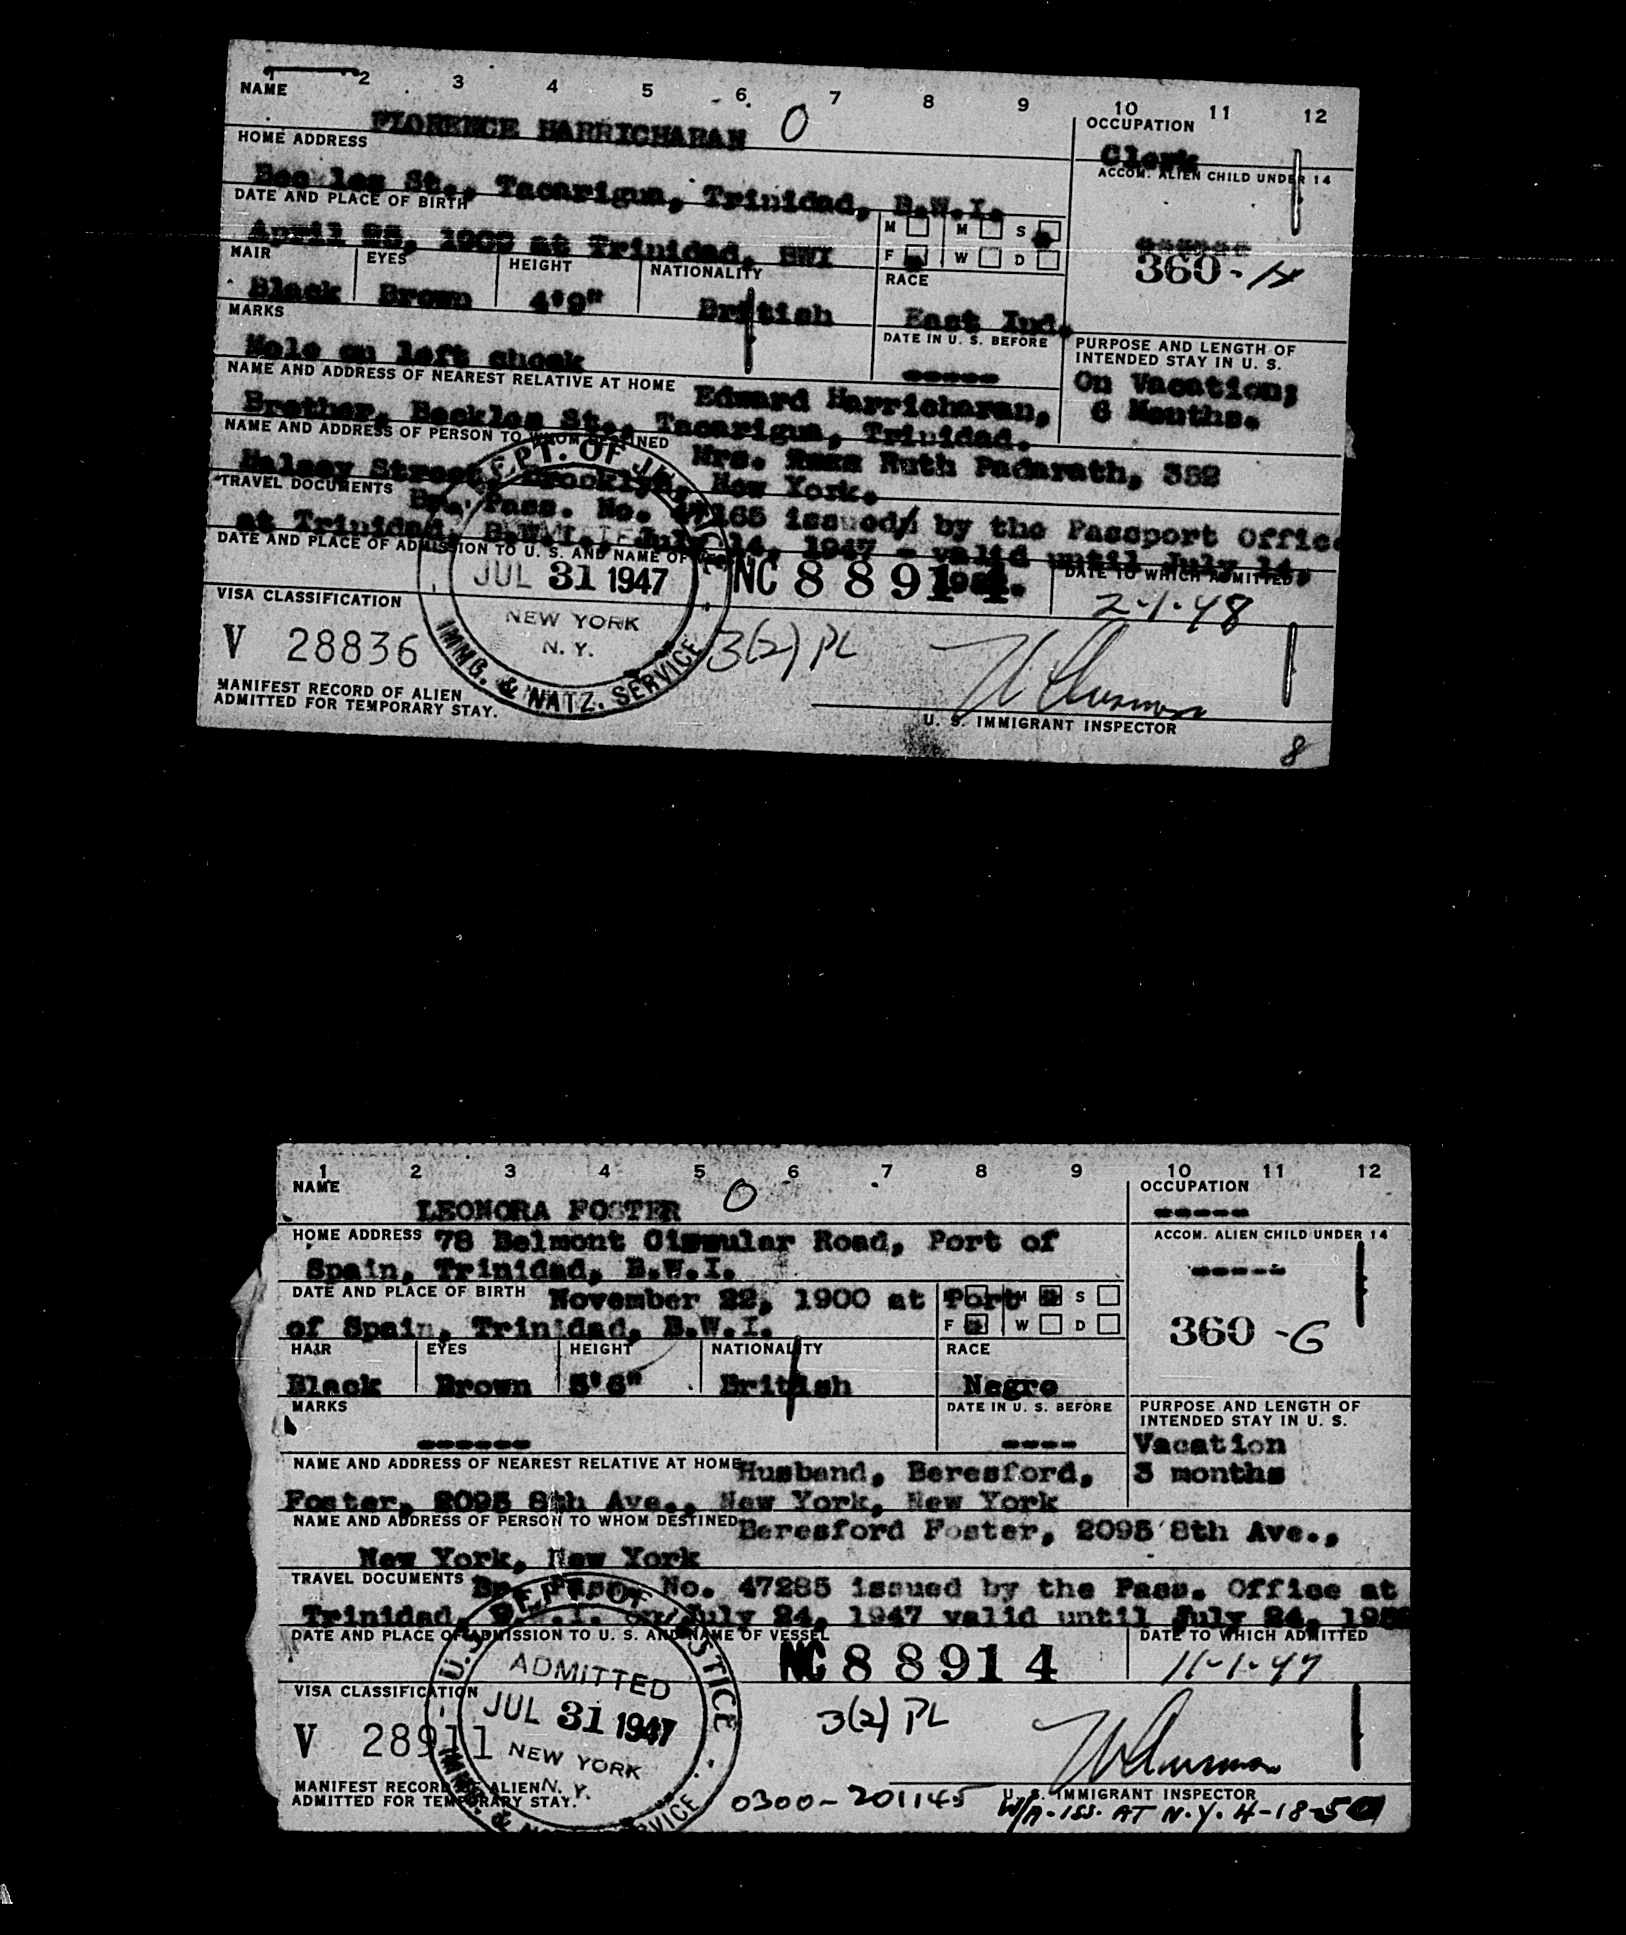 1 2 3 4 5 6 7 8 9 10 11 12
NAME OCCUPATION
FLORENCE HARRICHARAN O Clerk
HOME ADDRESS ACCOM. ALIEN CHILD UNDER 14
Beckles St., Tacarigua, Trinidad, B.W.I.
DATE AND PLACE OF BIRTH M M S
April at Trinidad, BWI F W D
360-H
HAIR EYES HEIGHT NATIONALITY RACE
Black Brown 4'9" British East Ind.
MARKS DATE IN U. S. BEFORE PURPOSE AND LENGTH OF
INTENDED STAY IN U. S.
Mole on left cheek ----- On Vacation;
NAME AND ADDRESS OF NEAREST RELATIVE AT HOME Edward Harricharan, 6 Months.
Brother, Beckles St., Tacarigua, Trinidad.
NAME AND ADDRESS OF PERSON TO WHOM DESTINED Mrs. Ruth Padarath, 352
Halsey Street, Brooklyn, New York.
TRAVEL DOCUMENTS Br. Pass. No. 47165 issued by the Passport Office
at Trinidad, B.W.I., July 14, 1947 - valid until July 14,
DATE AND PLACE OF ADMISSION TO U. S. AND NAME OF VESSEL NC 88914 DATE TO WHICH ADMITTED
2-1-48
DEPT. OF JUSTICE
JUL 31 1947
NEW YORK
N. Y.
IMMG. & NATZ. SERVICE
VISA CLASSIFICATION
V 28836 3(2) PL
MANIFEST RECORD OF ALIEN
ADMITTED FOR TEMPORARY STAY. U. S. IMMIGRANT INSPECTOR
8
1 2 3 4 5 6 7 8 9 10 11 12
NAME OCCUPATION
LEONORA FOSTER O -----
HOME ADDRESS 78 Belmont Circular Road, Port of ACCOM. ALIEN CHILD UNDER 14
Spain, Trinidad, B.W.I. -----
DATE AND PLACE OF BIRTH November 22, 1900 at Port M S
of Spain, Trinidad, B.W.I. F W D 360-G
HAIR EYES HEIGHT NATIONALITY RACE
Black Brown 5'6" British Negro
MARKS DATE IN U. S. BEFORE PURPOSE AND LENGTH OF
INTENDED STAY IN U. S.
------ ---- Vacation
NAME AND ADDRESS OF NEAREST RELATIVE AT HOME Husband, Beresford, 3 months
Foster, 2095 8th Ave., New York, New York
NAME AND ADDRESS OF PERSON TO WHOM DESTINED Beresford Foster, 2095 8th Ave.,
New York, New York
TRAVEL DOCUMENTS Br. Pass. No. 47285 issued by the Pass. Office at
Trinidad, B.W.I. on July 24, 1947 valid until July 24, 1952
DATE AND PLACE OF ADMISSION TO U. S. AND NAME OF VESSEL DATE TO WHICH ADMITTED
NC 88914 11-1-47
U.S. DEPT OF JUSTICE
ADMITTED
JUL 31 1947
NEW YORK
N. Y.
IMMG. & NATZ. SERVICE
VISA CLASSIFICATION
V 28911 3(2) PL
MANIFEST RECORD OF ALIEN U. S. IMMIGRANT INSPECTOR
ADMITTED FOR TEMPORARY STAY. 0300-201145 W/A-ISS. AT N.Y. 4-18-50